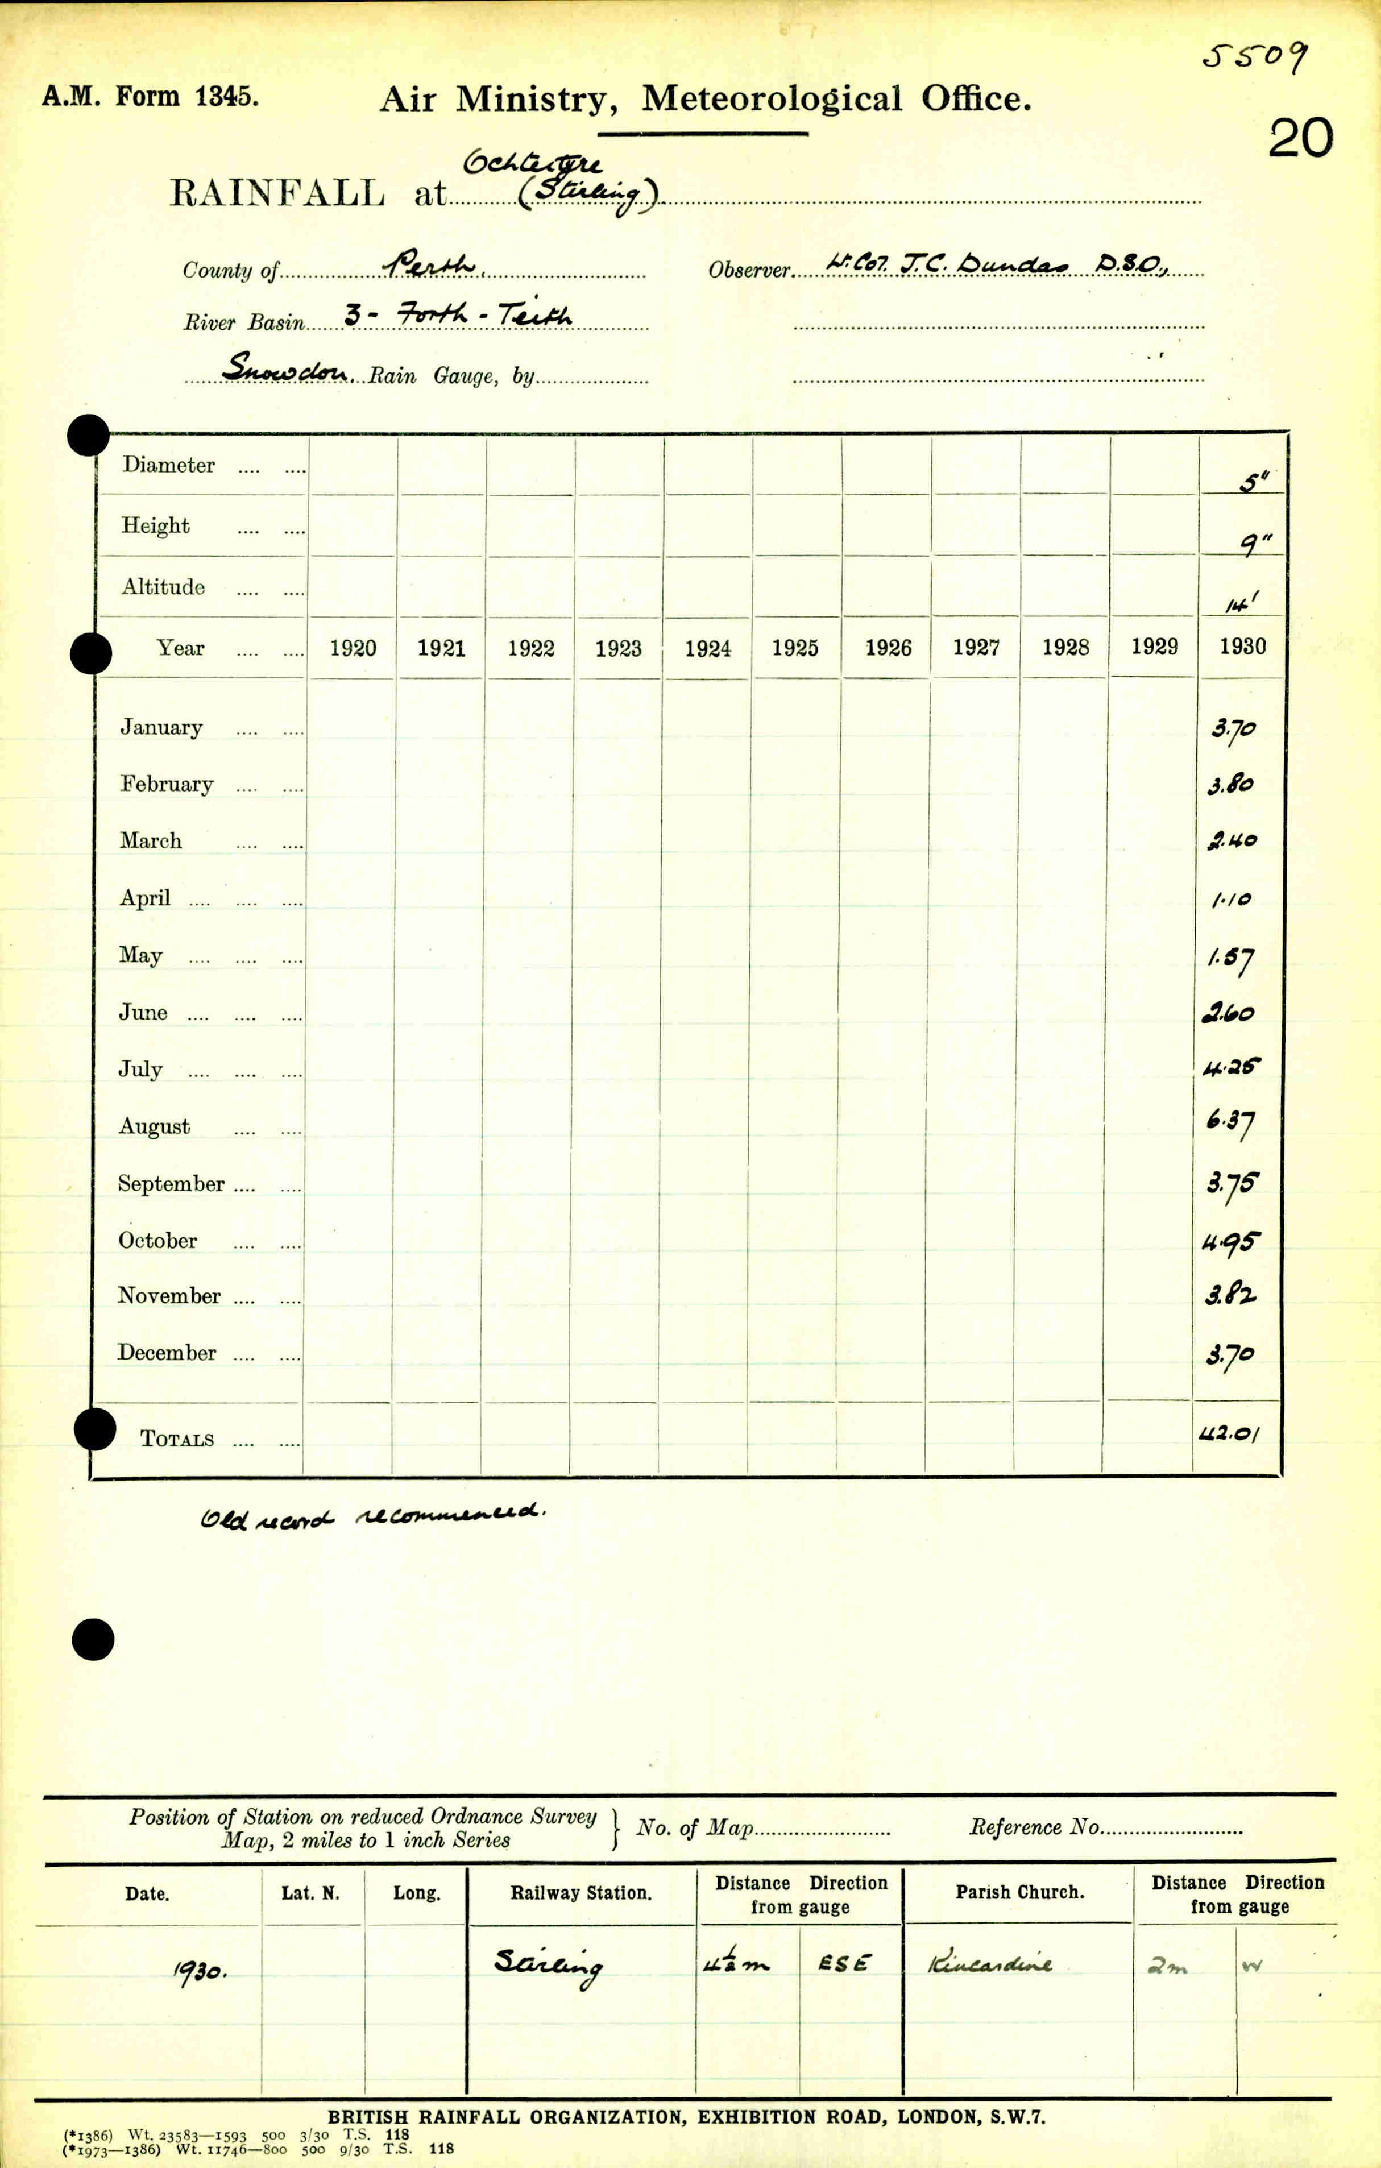 5509
A.M. Form 1345. Air Ministry, Meteorological Office.
20
Ochtertyre
RAINFALL at (Stirling)
County of Perth. Observer Lt. Col. J.C. Dundas D.S.O.,
River Basin 3 - Forth - Teith
Snowdon. Rain Gauge, by
Diameter .... .... 5"
Height .... .... 9"
Altitude .... .... 14'
Year .... .... 1920 1921 1922 1923 1924 1925 1926 1927 1928 1929 1930
January .... .... 3.70
February .... .... 3.80
March .... .... 2.40
April .... .... .... 1.10
May .... .... .... 1.57
June .... .... .... 2.60
July .... .... .... 4.25
August .... .... 6.37
September .... .... 3.75
October .... .... 4.95
November .... .... 3.82
December .... .... 3.70
TOTALS .... .... 42.01
Old record recommenced.
Position of Station on reduced Ordnance Survey
Map, 2 miles to 1 inch Series } No. of Map Reference No.
Date. Lat. N. Long. Railway Station. Distance Direction from gauge Parish Church. Distance Direction from gauge
1930. Stirling 4½ m ESE Kincardine 2m W
BRITISH RAINFALL ORGANIZATION, EXHIBITION ROAD, LONDON, S.W.7.
(*1386) Wt. 23583—1593 500 3/30 T.S. 118
(*1973—1386) Wt. 11746—800 500 9/30 T.S. 118